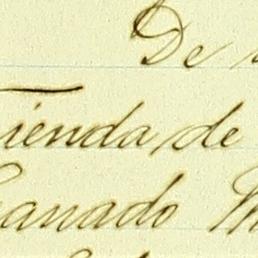 De
Tienda de
Granado